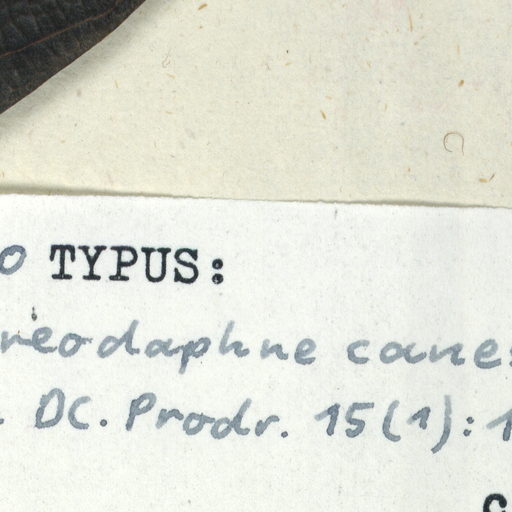 o TYPUS:
reodaphne canes
. DC. Prodr. 15(1): 1
c